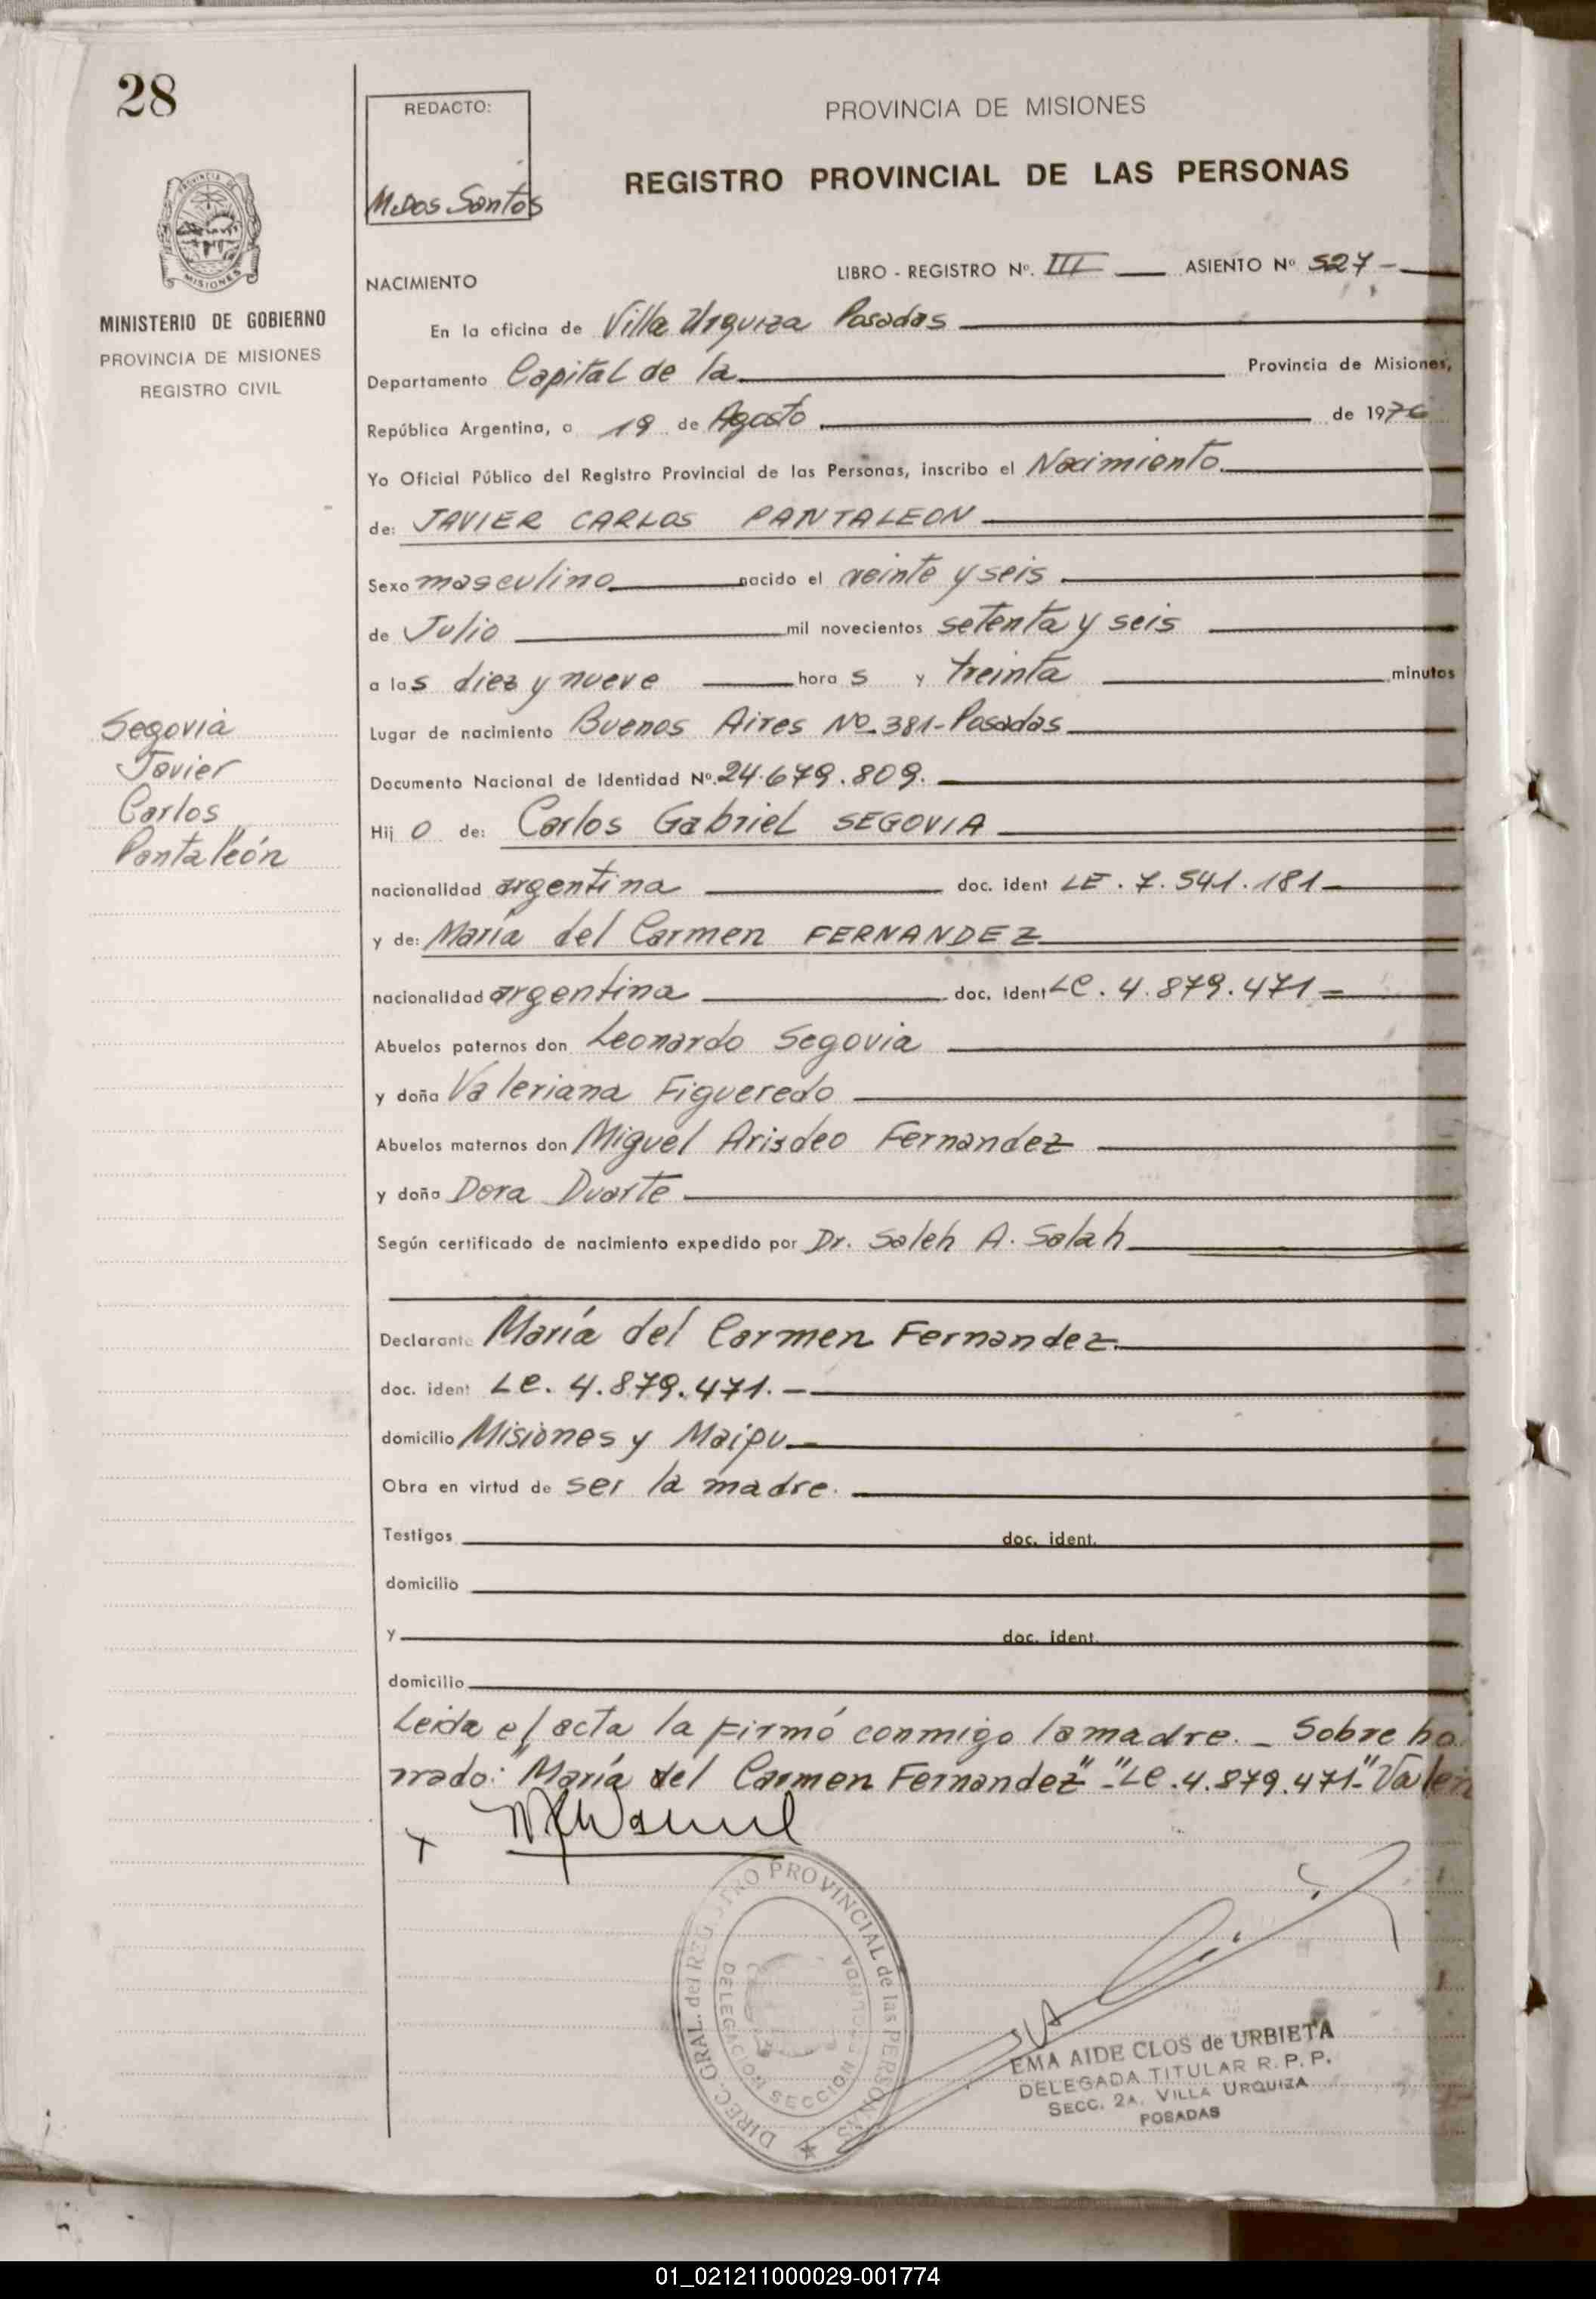 28
REDACTO:
M. Dos Santos
PROVINCIA DE MISIONES
REGISTRO PROVINCIAL DE LAS PERSONAS
PROVINCIA DE
MISIONES
MINISTERIO DE GOBIERNO
PROVINCIA DE MISIONES
REGISTRO CIVIL
NACIMIENTO
LIBRO - REGISTRO Nº. III ASIENTO Nº 527 -
En la oficina de Villa Urquiza Posadas
Departamento Capital de la Provincia de Misiones,
República Argentina, a 19 de Agosto de 1976
Yo Oficial Público del Registro Provincial de las Personas, inscribo el Nacimiento.
de: JAVIER CARLOS PANTALEON
Sexo masculino nacido el veinte y seis
de Julio mil novecientos setenta y seis
a las diez y nueve hora s y treinta minutos
Segovia
Javier
Carlos
Pantaleón
Lugar de nacimiento Buenos Aires Nº 381- Posadas
Documento Nacional de Identidad Nº. 24.679.809.
Hij o de: Carlos Gabriel SEGOVIA
nacionalidad argentina doc. ident LE. 7.541.181-
y de: María del Carmen FERNANDEZ
nacionalidad argentina doc. ident LC. 4.879.471=
Abuelos paternos don Leonardo Segovia
y doña Valeriana Figueredo
Abuelos maternos don Miguel Arisdeo Fernandez
y doña Dora Duarte
Según certificado de nacimiento expedido por Dr. Saleh A. Salah
Declarante María del Carmen Fernandez.
doc. ident Lc. 4.879.471. -
domicilio Misiones y Maipu.
Obra en virtud de ser la madre.
Testigos doc. ident.
domicilio
y doc. ident.
domicilio
Leida el acta la firmó conmigo la madre. - Sobre bo
rrado: "María del Carmen Fernandez" - "Lc. 4.879.471-" Valen
DIREC. GRAL. del REGISTRO PROVINCIAL de las PERSONAS
DELEGACION SECCION
EMA AIDE CLOS de URBIETA
DELEGADA TITULAR R. P. P.
SECC. 2A. VILLA URQUIZA
POSADAS
01_021211000029-001774